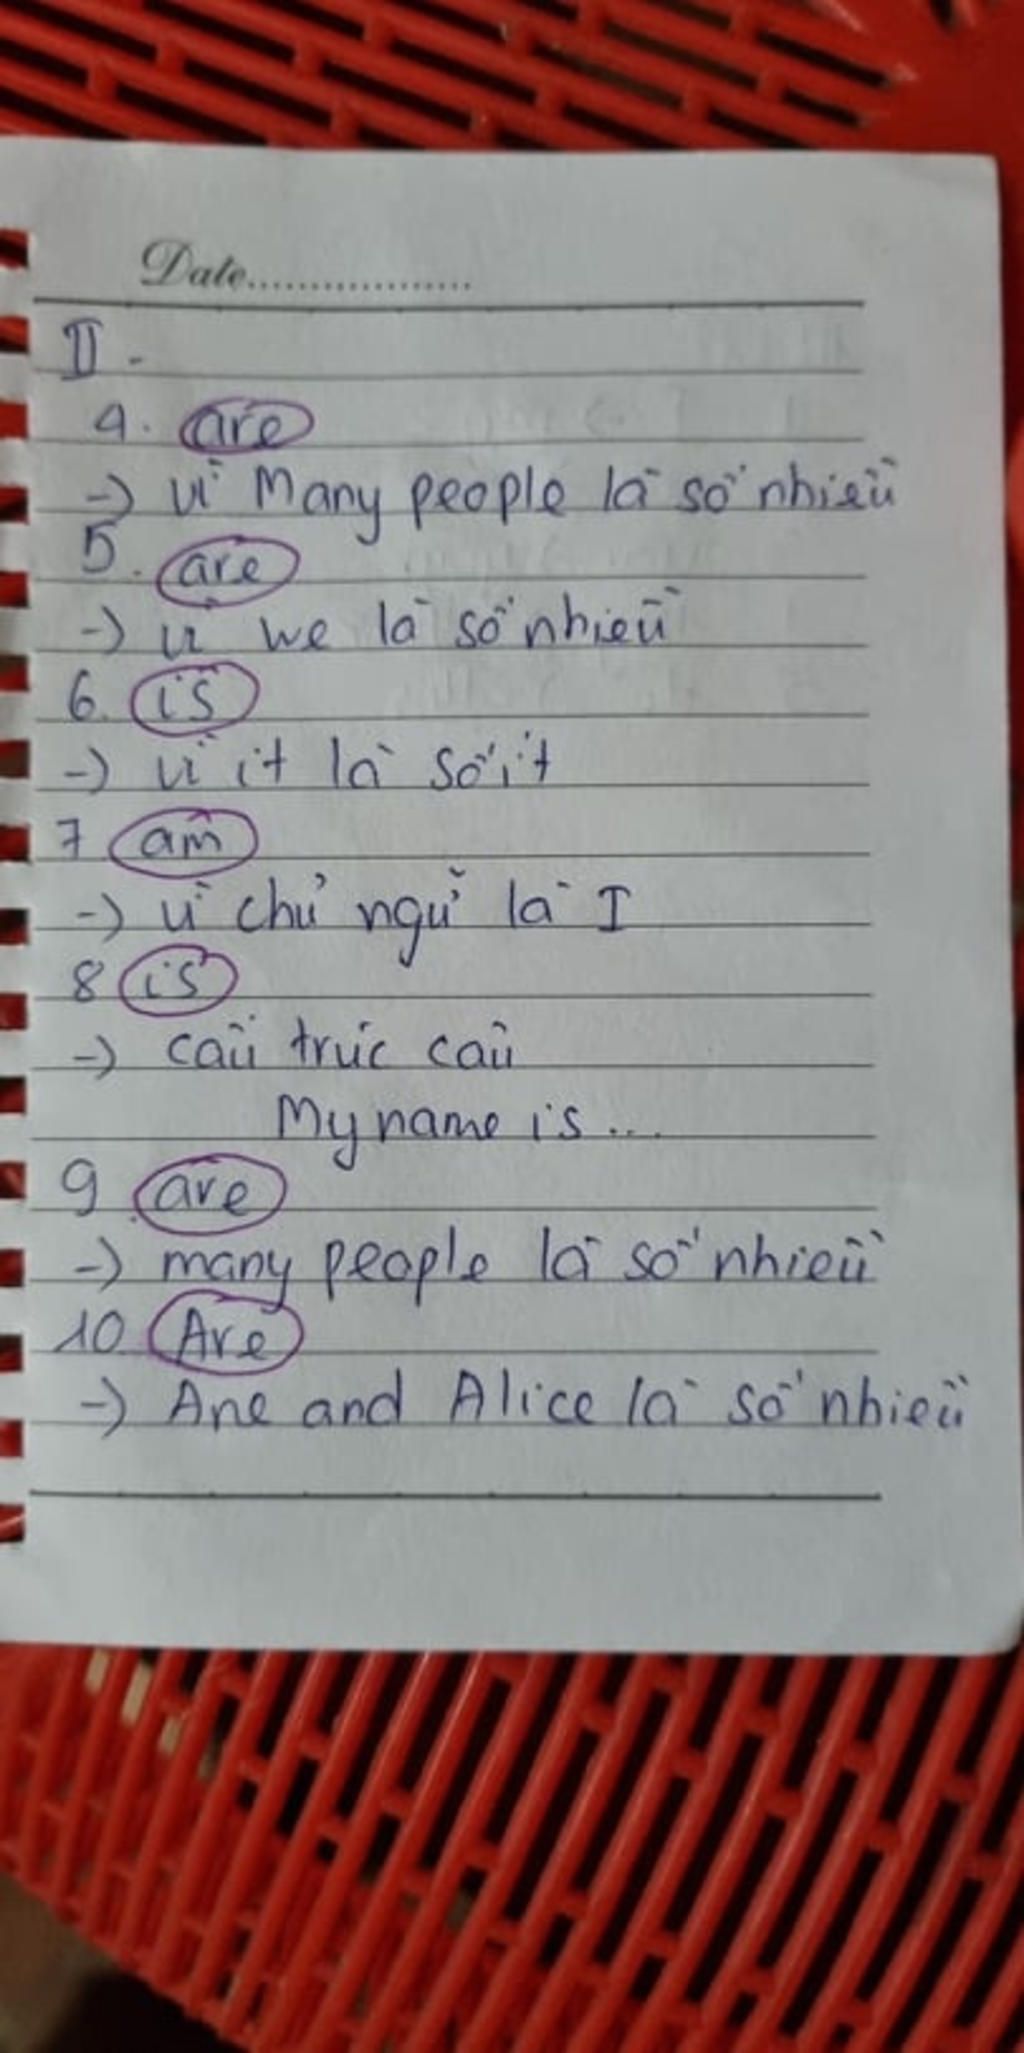 Date..................
II -
4. are
-) vì Many people là số nhiều
5. are
-) vì we là số nhiều
6. is
-) vì it là số ít
7 am
-) vì chủ ngữ là I
8 is
-) cấu trúc câu
My name is ...
9 are
-) many people là số nhiều
10 Are
-) Ane and Alice là số nhiều